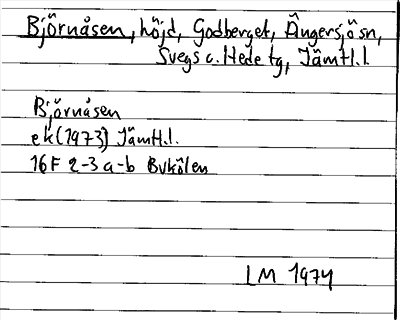 Björnåsen, höjd, Godberget, Ängersjö sn,
Svegs o. Hede tg, Jämtl.l.
Björnåsen
ek (1973) Jämtl.l.
16F 2-3 a-b Bukölen
LM 1974